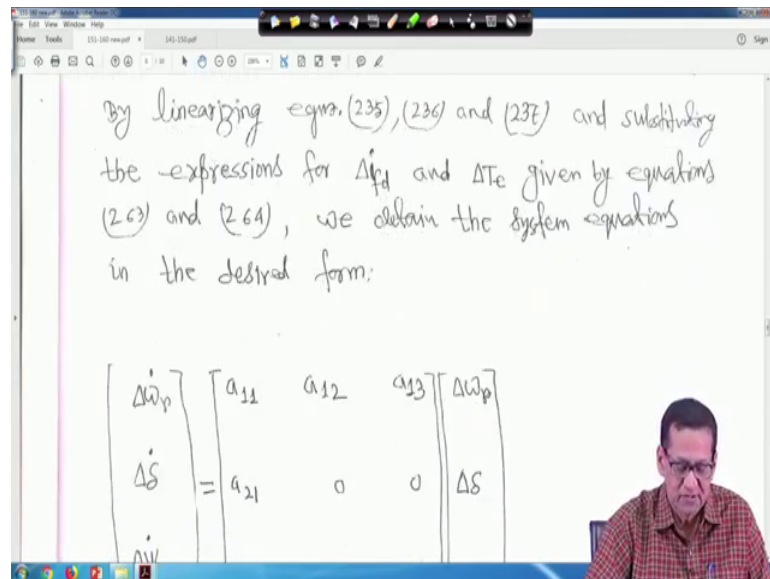 File Edit View Window Help
Home Tools 151-160 new.pdf × 141-150.pdf Sign
By linearizing eqns. (235), (236) and (237) and substituting
the expressions for Δi̇fd and ΔTe given by equations
(263) and (264), we obtain the system equations
in the desired form:
Δω̇r a11 a12 a13 Δωr
Δδ̇ = a21 0 0 Δδ